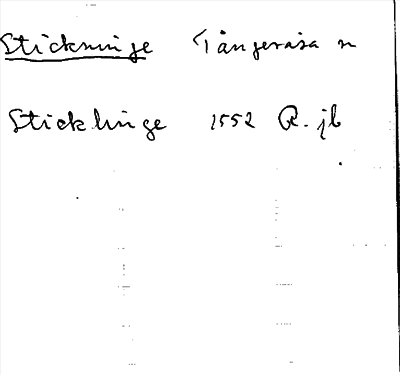 Stickninge Tångeråsa sn
Sticklinge 1552 R. jb